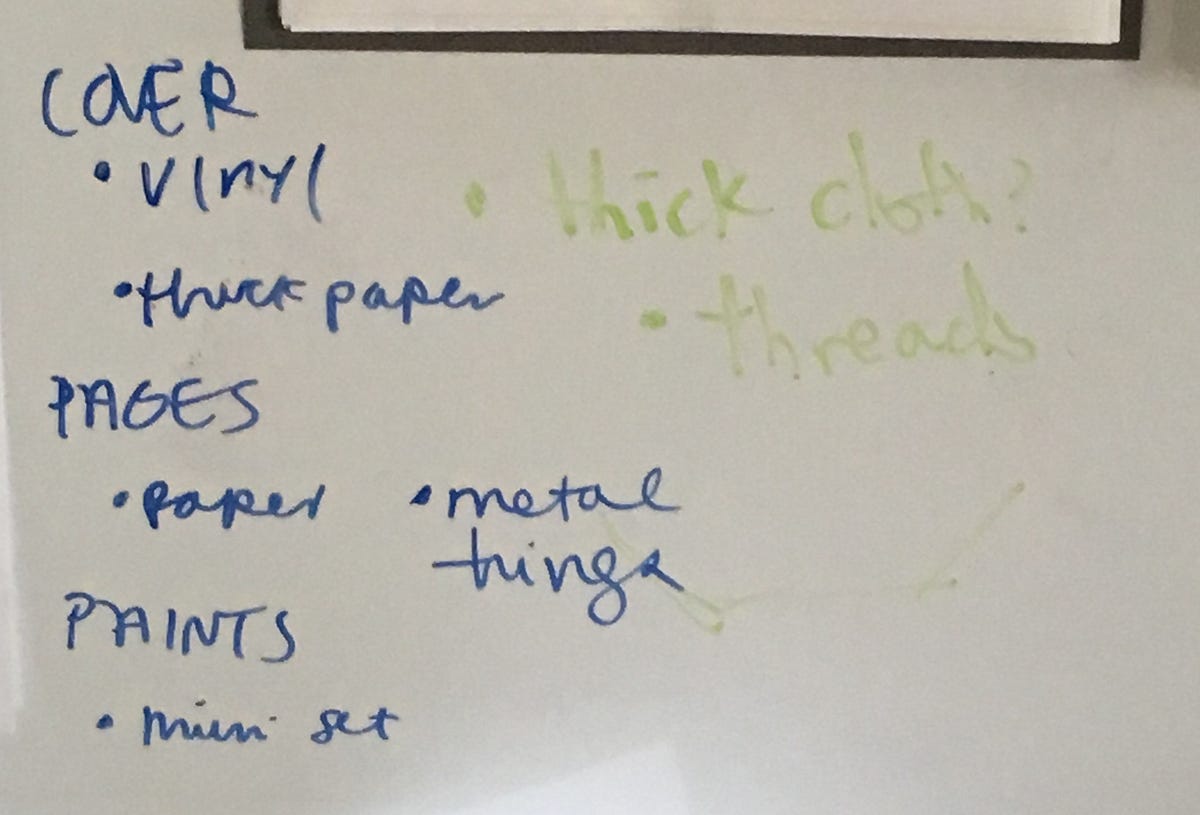 COVER
• vinyl
• thick cloth?
• thick paper
• threads
PAGES
• paper • metal
things
PAINTS
• mini set